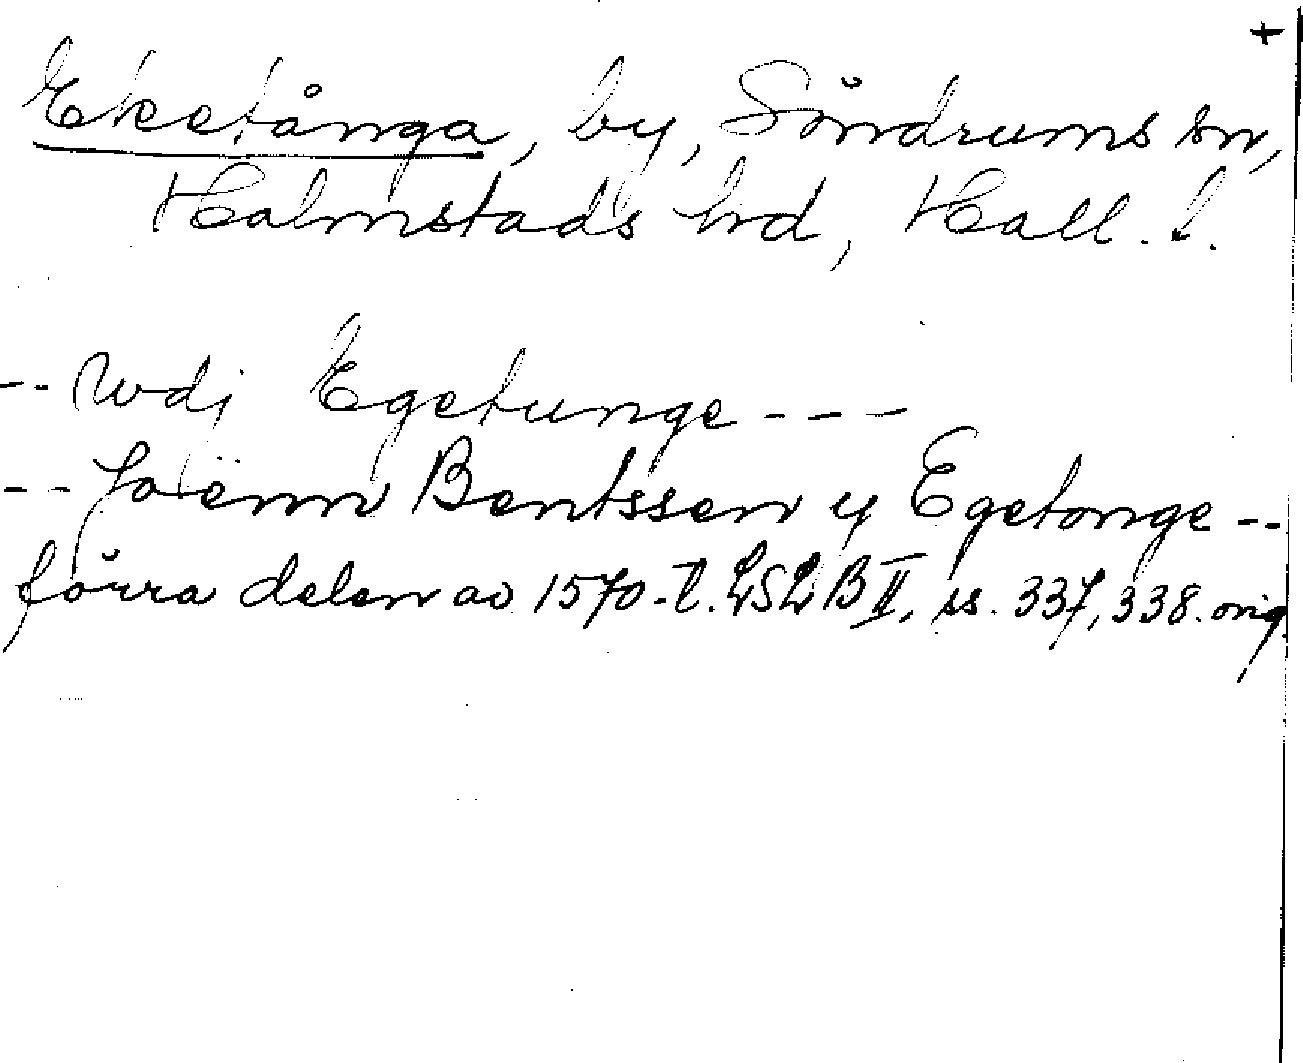 +
Eketånga, by, Söndrums sn,
Halmstads hrd, Hall. l.
-- wdj Egetunge ---
-- Joenn Bentssen y Egetonge --
förra delen av 1570-t. LSLB II, ss. 337, 338. orig.